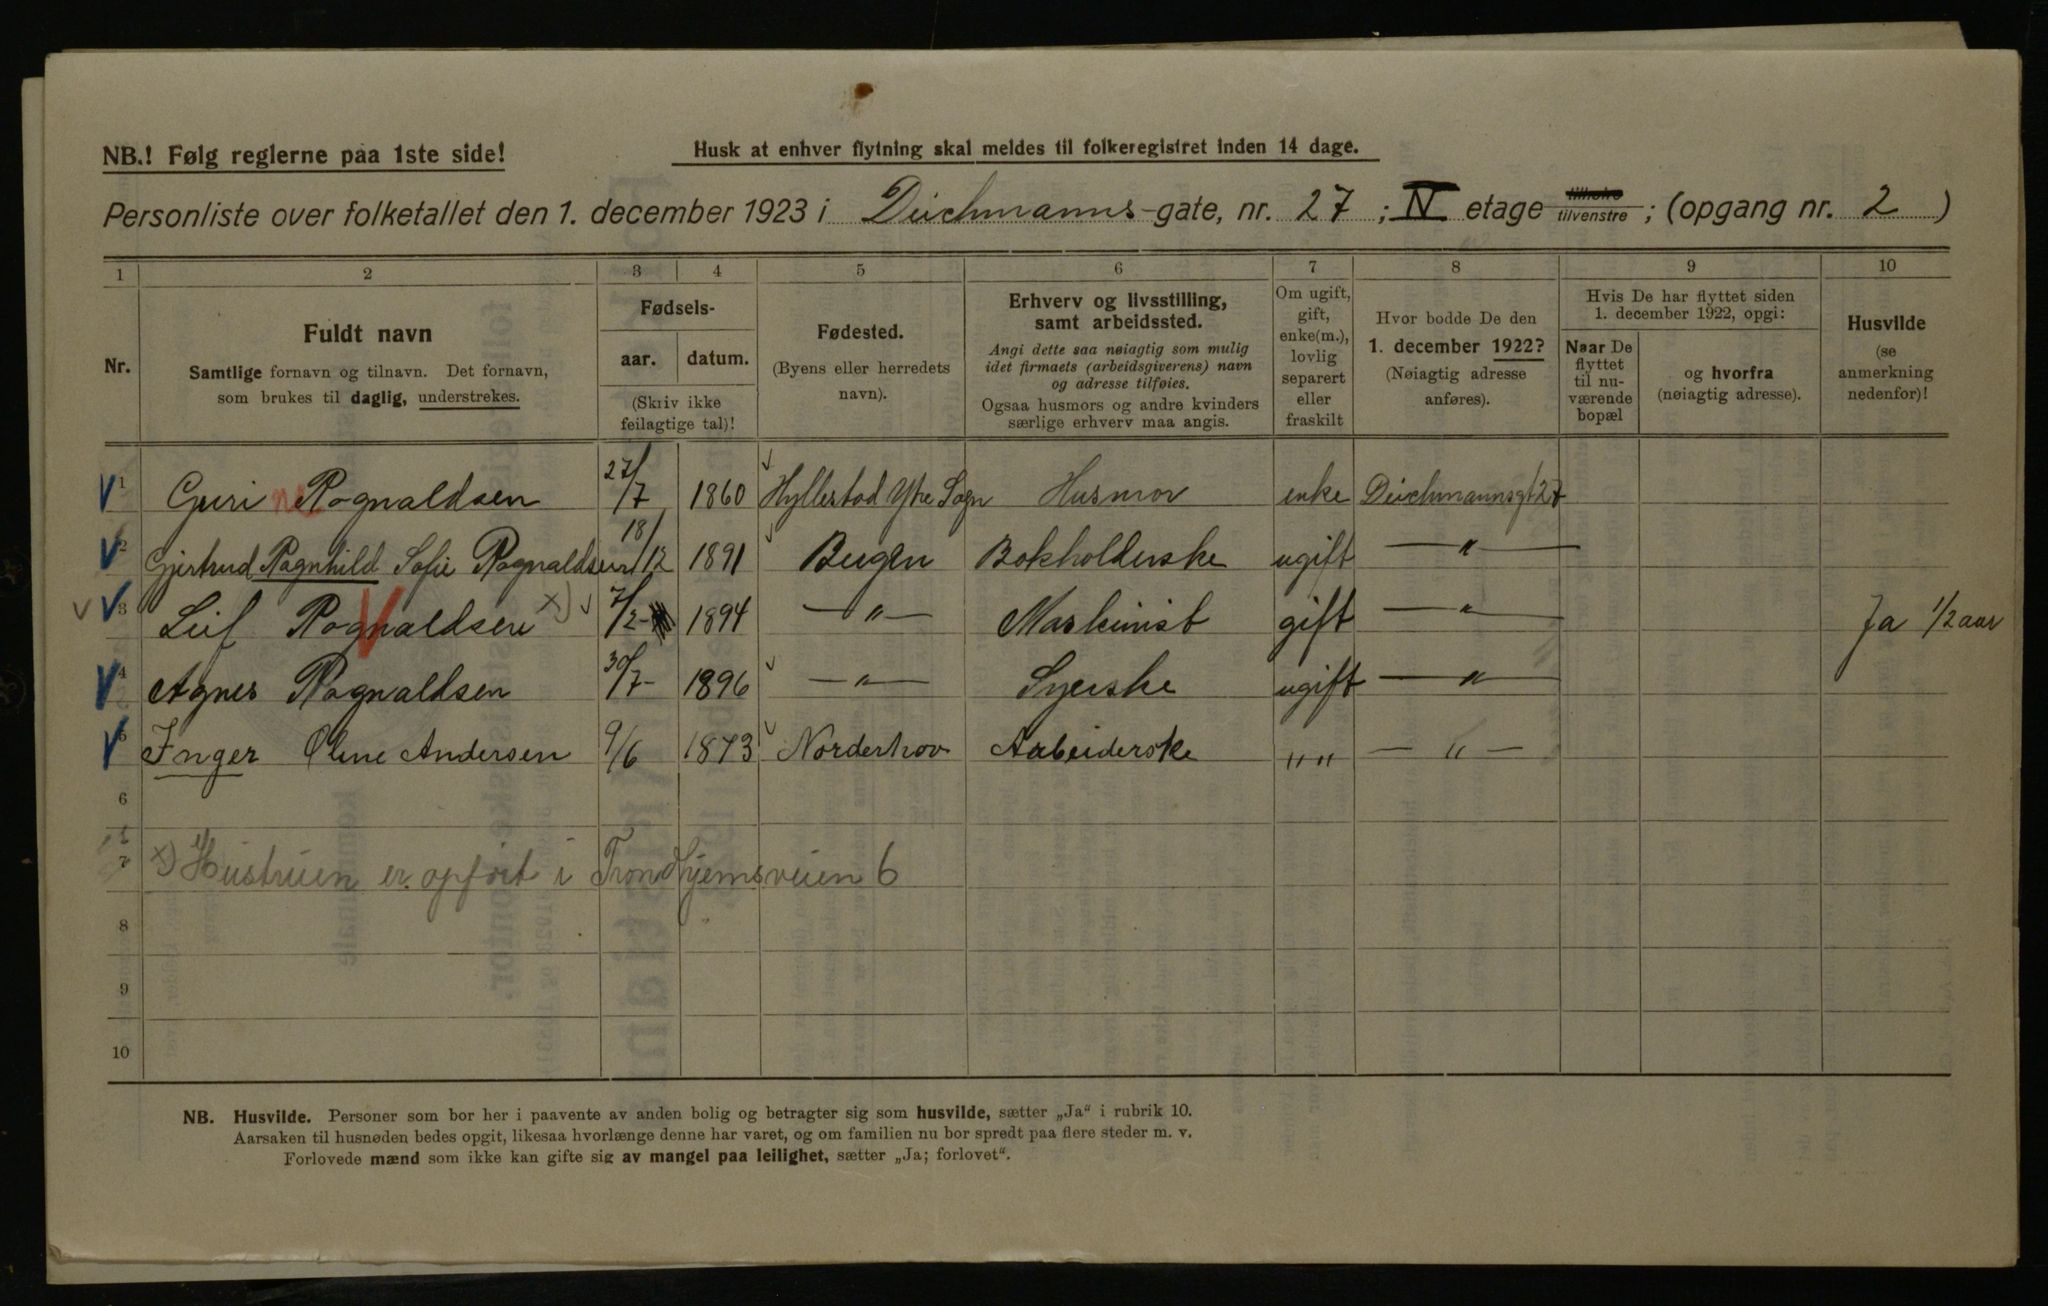 NB.! Følg reglerne paa 1ste side!
Husk at enhver flytning skal meldes til folkeregistret inden 14 dage.
Personliste over folketallet den 1. december 1923 i Deichmanns-gate, nr. 27; IV etage tilvenstre; (opgang nr. 2)
1 2 3 4 5 6 7 8 9 10
Nr.
Fuldt navn
Samtlige fornavn og tilnavn. Det fornavn,
som brukes til daglig, understrekes.
Fødsels-
aar. datum.
(Skriv ikke
feilagtige tal)!
Fødested.
(Byens eller herredets
navn).
Erhverv og livsstilling,
samt arbeidssted.
Angi dette saa nøiagtig som mulig
idet firmaets (arbeidsgiverens) navn
og adresse tilføies.
Ogsaa husmors og andre kvinders
særlige erhverv maa angis.
Om ugift,
gift,
enke(m.),
lovlig
separert
eller
fraskilt
Hvor bodde De den
1. december 1922?
(Nøiagtig adresse
anføres).
Hvis De har flyttet siden
1. december 1922, opgi:
Naar De
flyttet
til nu-
værende
bopæl
og hvorfra
(nøiagtig adresse).
Husvilde
(se
anmerkning
nedenfor)!
1 Guri Rognaldsen 27/7 1860 Hyllestad Ytre Sogn Husmor enke Deichmannsgt 27
2 Gjertrud Ragnhild Sofie Rognaldsen 18/12 1891 Bergen Bokholderske ugift — " —
3 Leif Rognaldsen x) 7/2 1894 — " — Maskinist gift — " — Ja 1/2 aar
4 Agnes Rognaldsen 30/7 - 1896 — " — Syerske ugift — " —
5 Inger Oline Andersen 9/6 1873 Norderhov Arbeiderske " " — " —
6
7 x) Hustruen er opført i Trondhjemsveien 6
8
9
10
NB. Husvilde. Personer som bor her i paavente av anden bolig og betragter sig som husvilde, sætter „Ja" i rubrik 10.
Aarsaken til husnøden bedes opgit, likesaa hvorlænge denne har varet, og om familien nu bor spredt paa flere steder m. v.
Forlovede mænd som ikke kan gifte sig av mangel paa leilighet, sætter „Ja; forlovet".